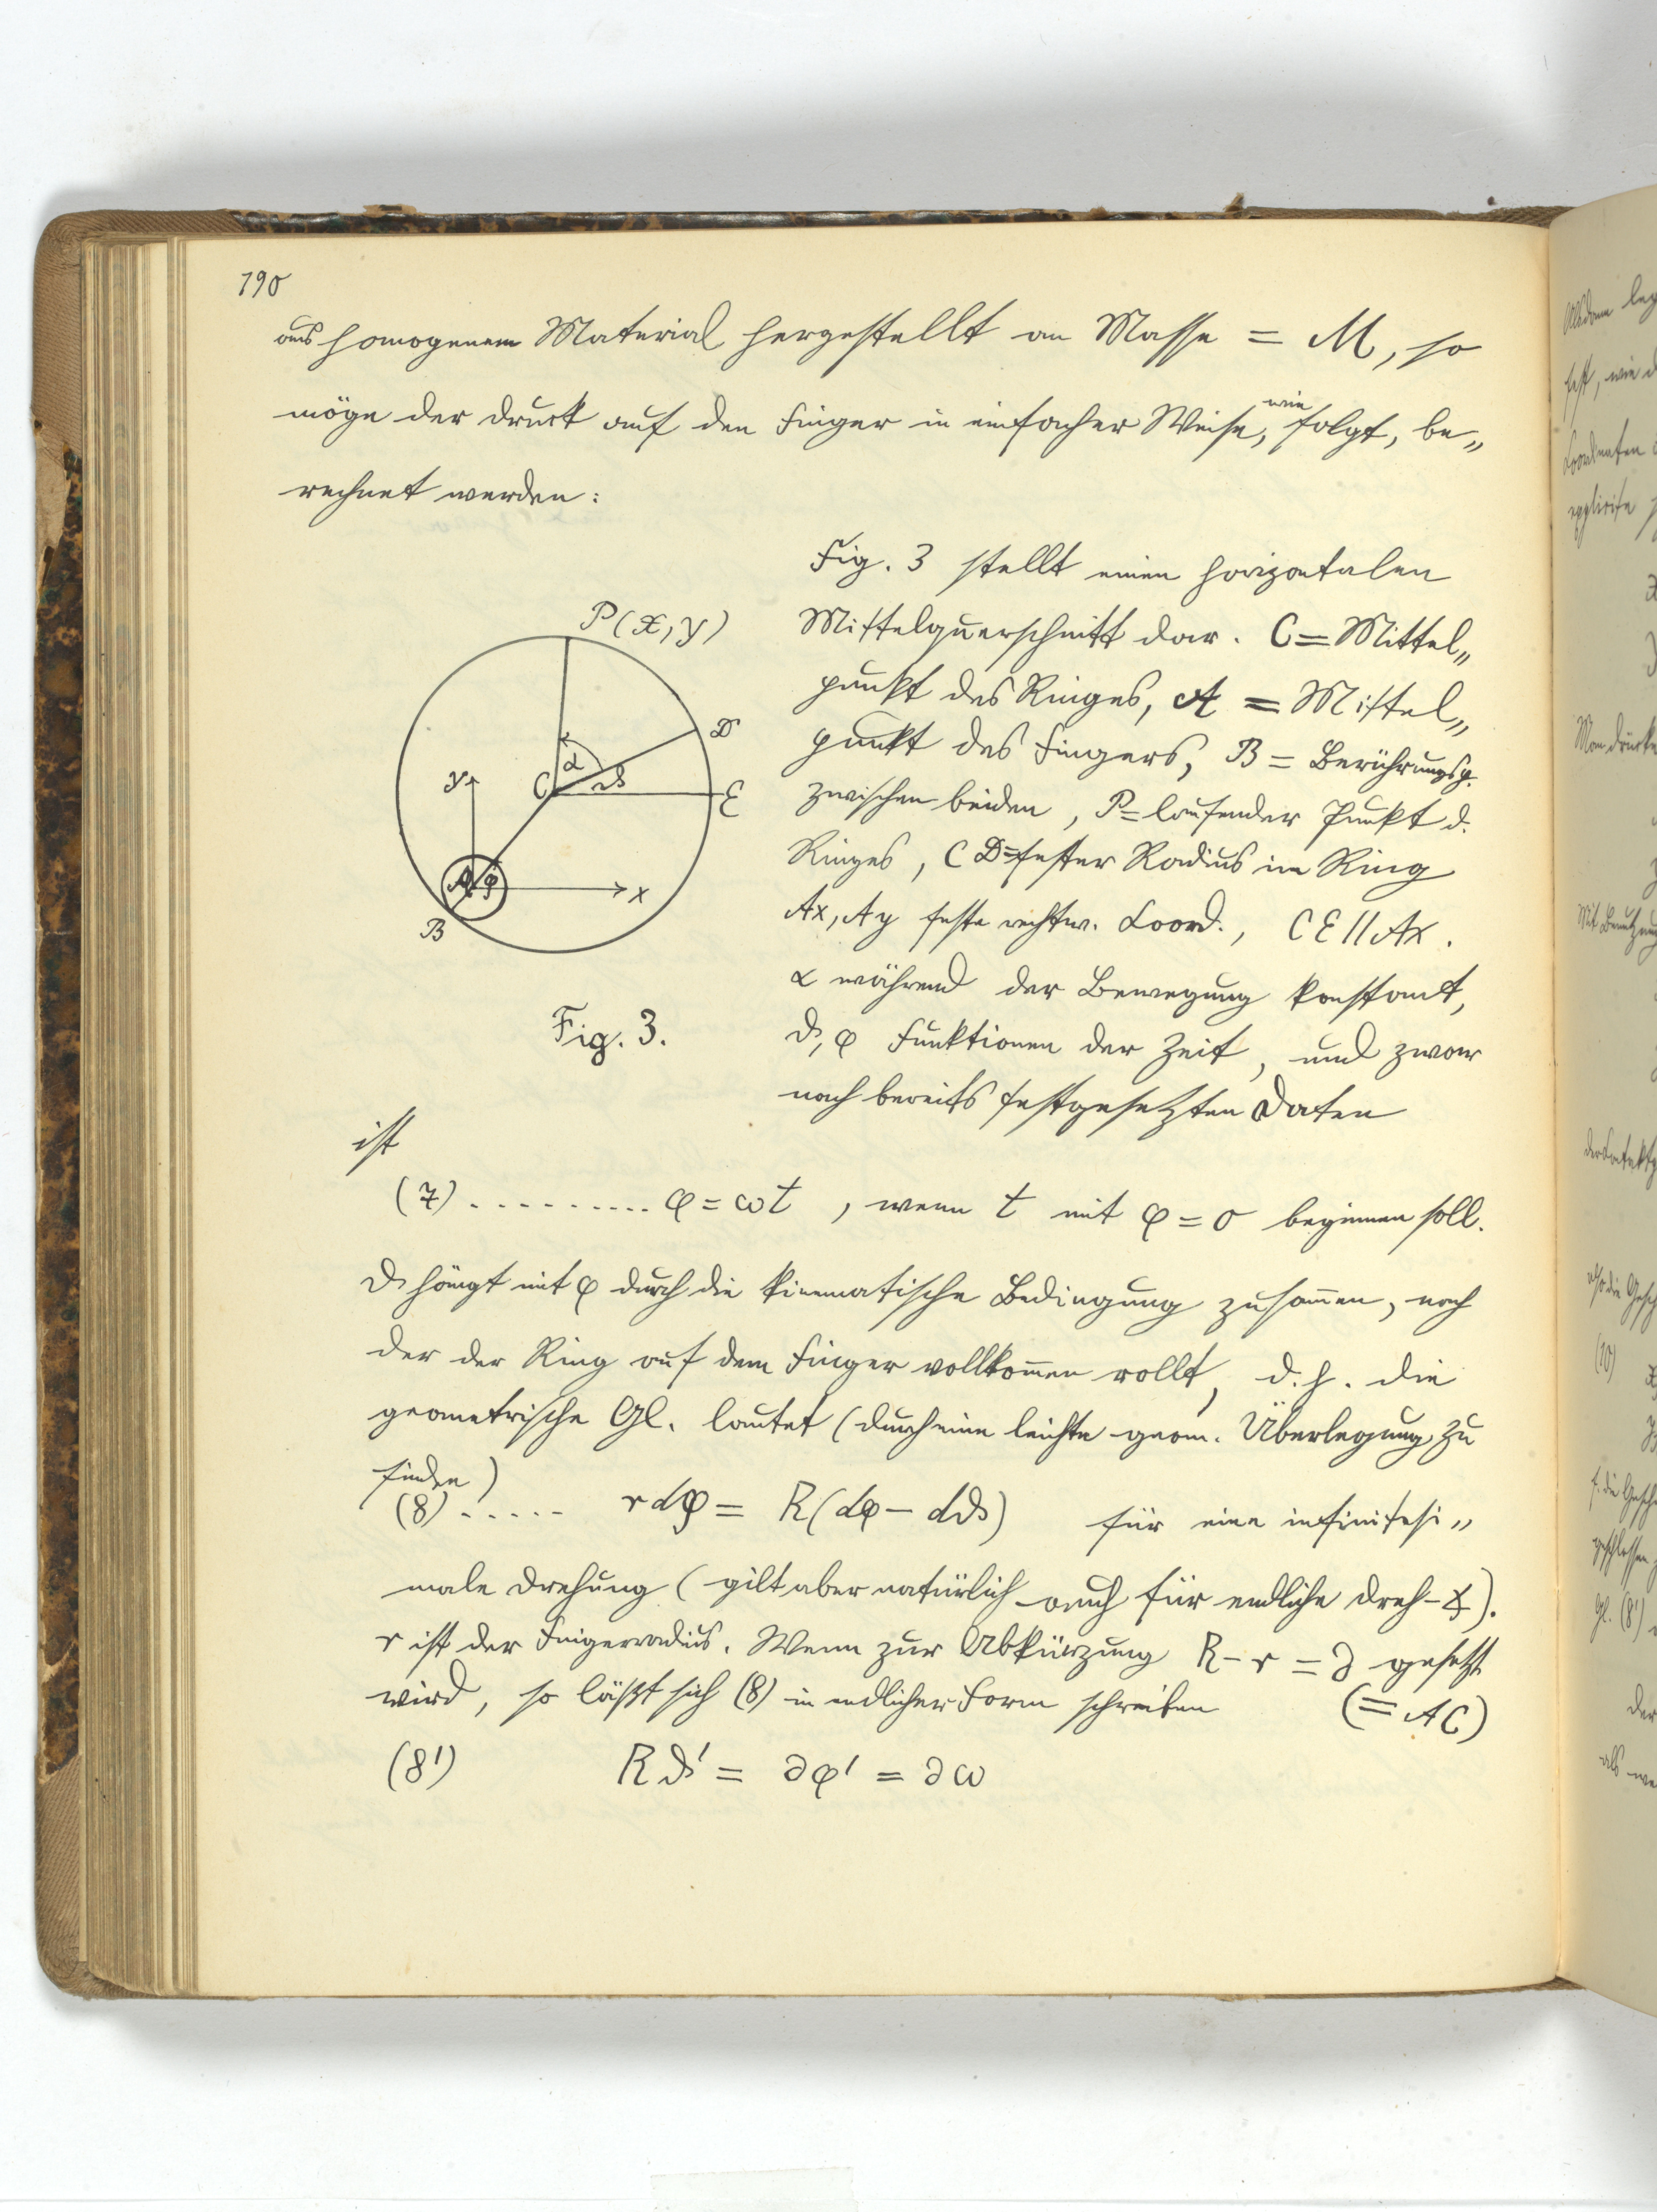 190
aus homogenem Material hergestellt an Masse = M, so
möge der Druck auf den Finger in einfacher Weise, wie folgt, be„
rechnet werden:
Fig. 3 stellt einen horizontalen
Mittelquerschnitt dar. C = Mittel„
punkt des Ringes, A = Mittel„
punkt des Fingers, B = Berührungsp.
zwischen beiden, P = laufender Punkt d.
Ringes, CD = fester Radius im Ring
Ax, Ay feste rechtw. Coord., CE // Ax.
α während der Bewegung konstant,
ϑ, φ Funktionen der Zeit, und zwar
nach bereits festgesetzten Daten
P(x, y)
D
α
C
ϑ
E
y
A
φ
x
B
Fig. 3.
ist
(7) .......... φ = ωt, wenn t mit φ = 0 beginnen soll.
ϑ hängt mit φ durch die kinematische Bedingung zusam̅en, nach
der der Ring auf dem Finger vollkom̅en rollt, d. h. die
geometrische Gl. lautet (durch eine leichte geom. Überlegung zu
finden)
(8) ..... r dφ = R(dφ – dϑ) für eine infinitesi„
male Drehung (gilt aber natürlich auch für endliche Dreh-∡).
r ist der Fingerradius. Wenn zur Abkürzung R – r = ∂ gesetzt
wird, so läßt sich (8) in endlicher Form schreiben (= AC)
(8') Rϑ' = ∂φ' = ∂ω